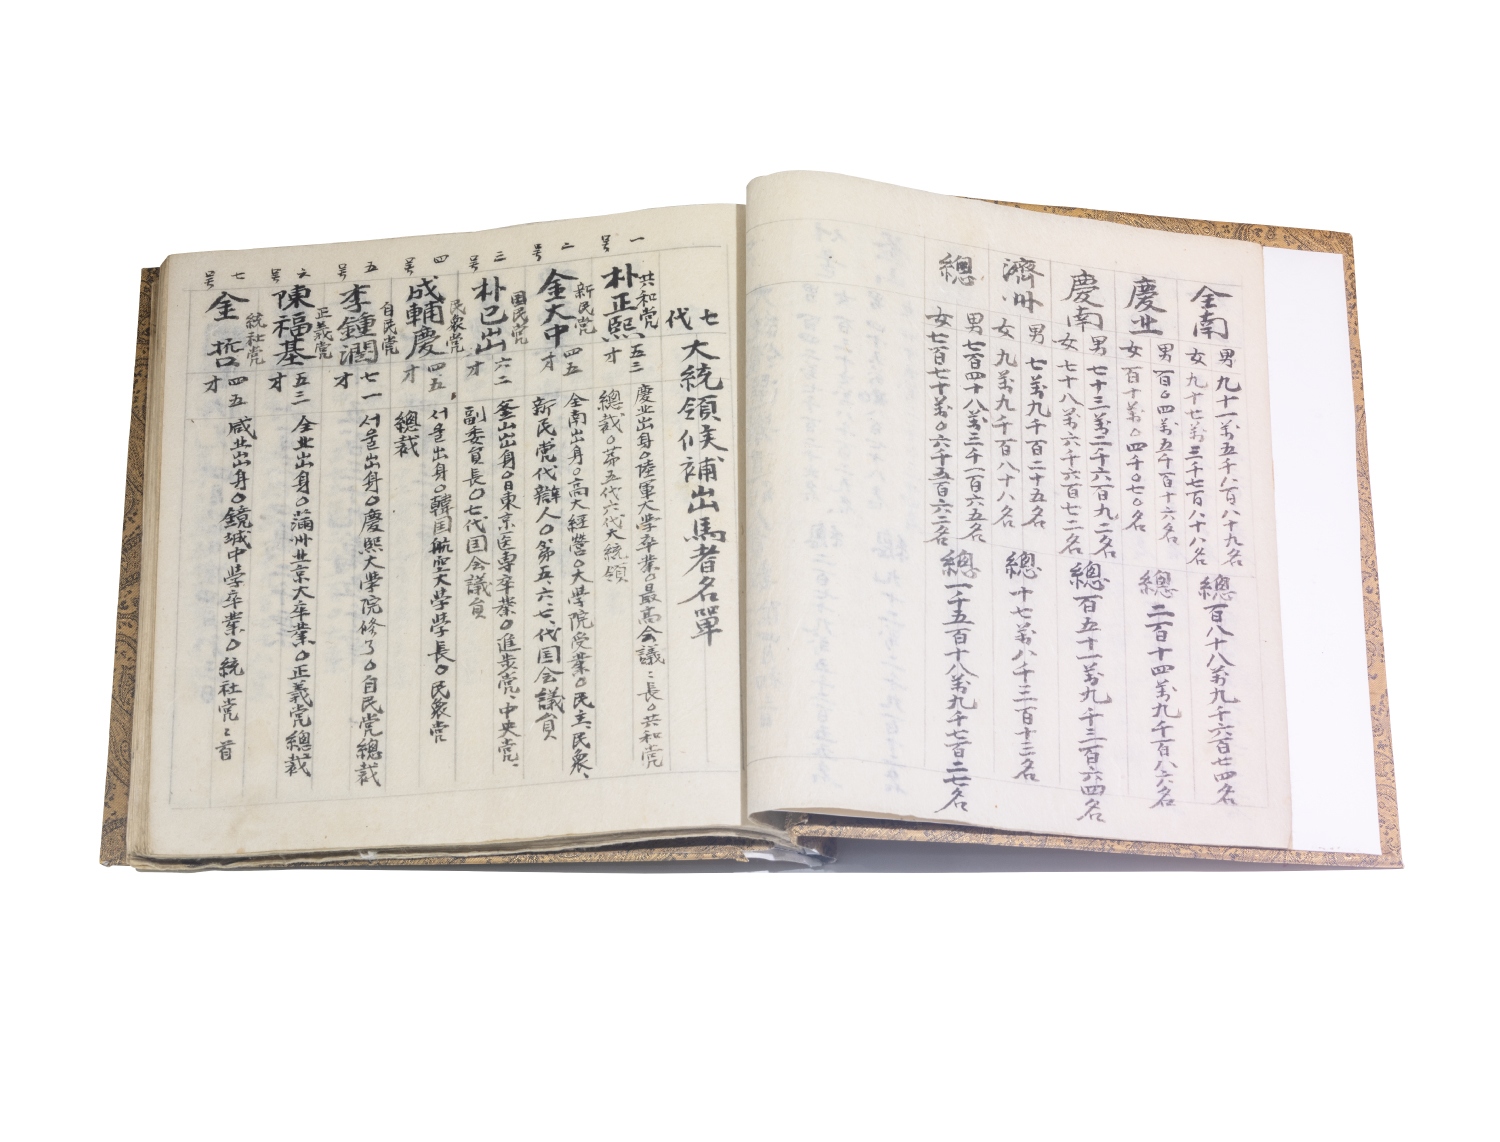 全南
男 九十一萬五千八百八十九名
女 九十七萬三千七百八十八名
總 百八十八萬九千六百七四名
慶北
男 百〇四萬五千百十六名
女 百十萬〇四千〇七〇名
總 二百十四萬九千百八六名
慶南
男 七十三萬二千六百九二名
女 七十八萬六千六百七二名
總 百五十一萬九千三百六四名
濟州
男 七萬九千百二十五名
女 九萬九千百八十八名
總 十七萬八千三百十三名
總
男 七百四十八萬三千一百六五名
女 七百七十萬〇六千五百六二名
總 一千五百十八萬九千七百二七名
七代 大統領候補出馬者名單
一号 共和党 朴正熙 五三才 慶北出身〇陸軍大学卒業〇最高会議ミ長〇共和党
總裁〇第五代六代大統領
二号 新民党 金大中 四五才 全南出身〇高大経営〇大學院受業〇民主、民衆、
新民党代辯人〇第五、六、七、代国会議員
三号 国民党 朴己出 六二才 釜山出身〇日東京医専卒業〇進步党、中央党、
副委員長〇七代国会議員
四号 民衆党 成輔慶 四五才 서울出身〇韓国航空大学学長〇民衆党
總裁
五号 自民党 李鍾潤 七一才 서울出身〇慶熙大学院修了〇自民党總裁
六号 正義党 陳福基 五三才 全北出身〇滿州北京大卒業〇正義党總裁
七号 統社党 金 四五才 咸北出身〇鏡城中学卒業〇統社党ミ首